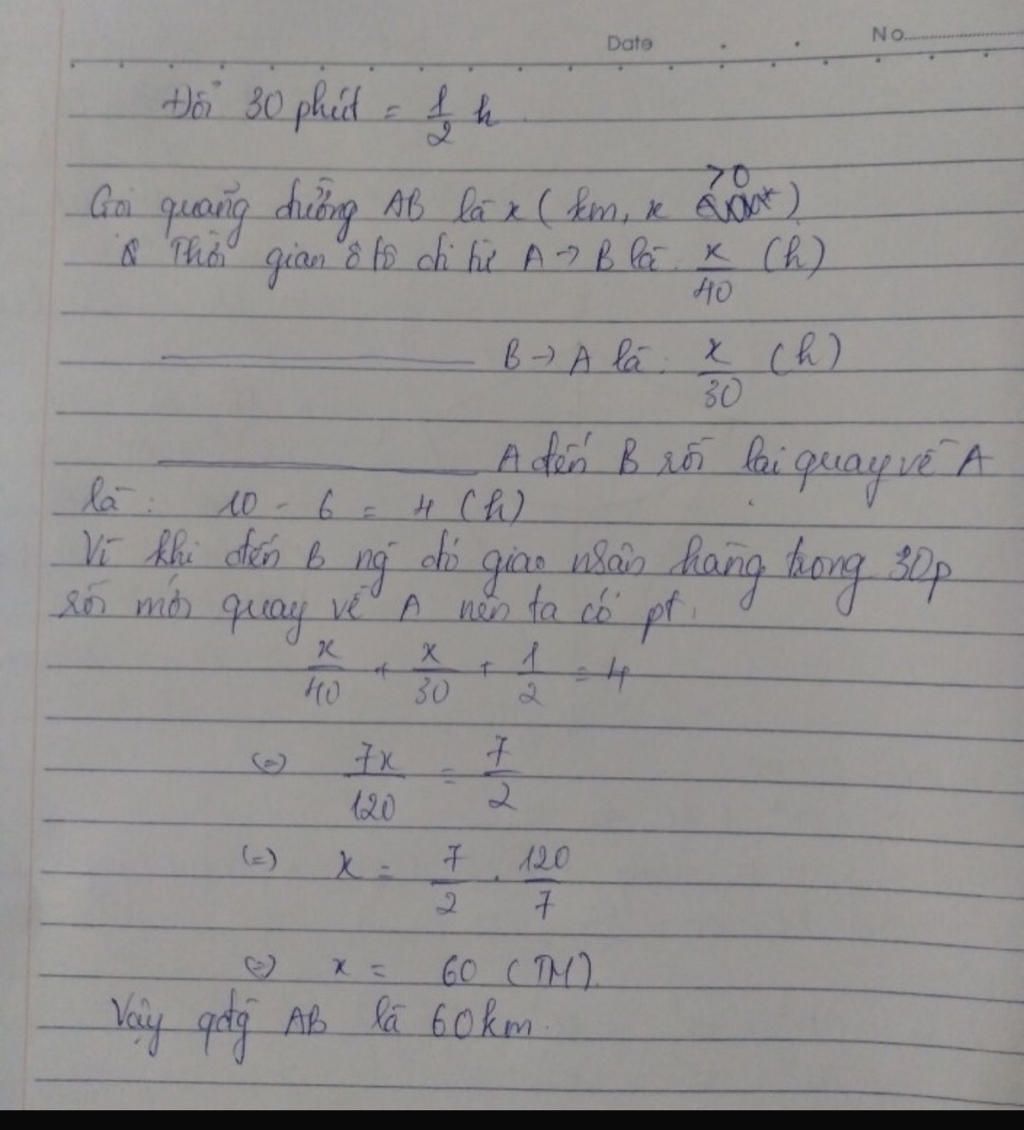 Date No
Đổi 30 phút = 1/2 h
Gọi quãng đường AB là x (km, x >0)
Thời gian ô tô đi từ A → B là: x/40 (h)
B → A là: x/30 (h)
A đến B rồi lại quay về A
là: 10 - 6 = 4 (h)
Vì khi đến B ng đó giao nhận hàng trong 30p
rồi mới quay về A nên ta có pt:
x/40 + x/30 + 1/2 = 4
(=) 7x/120 = 7/2
(=) x = 7/2 . 120/7
(=) x = 60 (TM).
Vậy qđg AB là 60km.